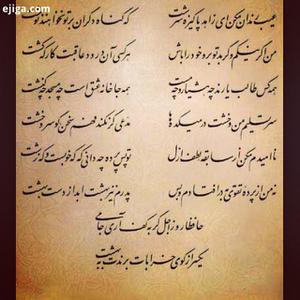 ejiga.com
عیب رندان مکن ای زاهد پاکیزه سرشت که گناه دگران بر تو نخواهند نوشت
من اگر نیکم و گر بد تو برو خود را باش هر کسی آن درود عاقبت کار که کشت
همه کس طالب یارند چه هشیار و چه مست همه جا خانه عشق است چه مسجد چه کنشت
سر تسلیم من و خشت در میکده‌ها مدعی گر نکند فهم سخن گو سر و خشت
ناامیدم مکن از سابقه لطف ازل تو پس پرده چه دانی که که خوب است و که زشت
نه من از پرده تقوی به درافتادم و بس پدرم نیز بهشت ابد از دست بهشت
حافظا روز اجل گر به کف آری جامی
یکسر از کوی خرابات برندت به بهشت